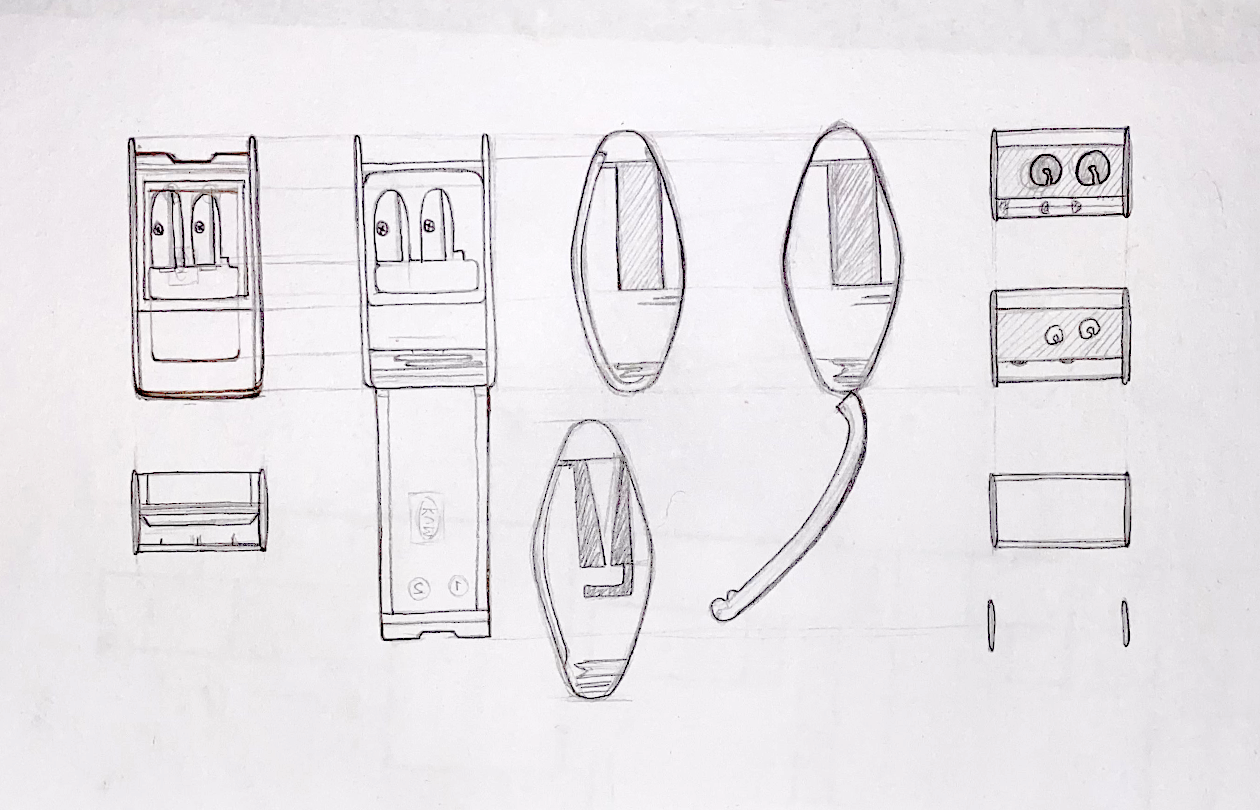 KUM
2 1